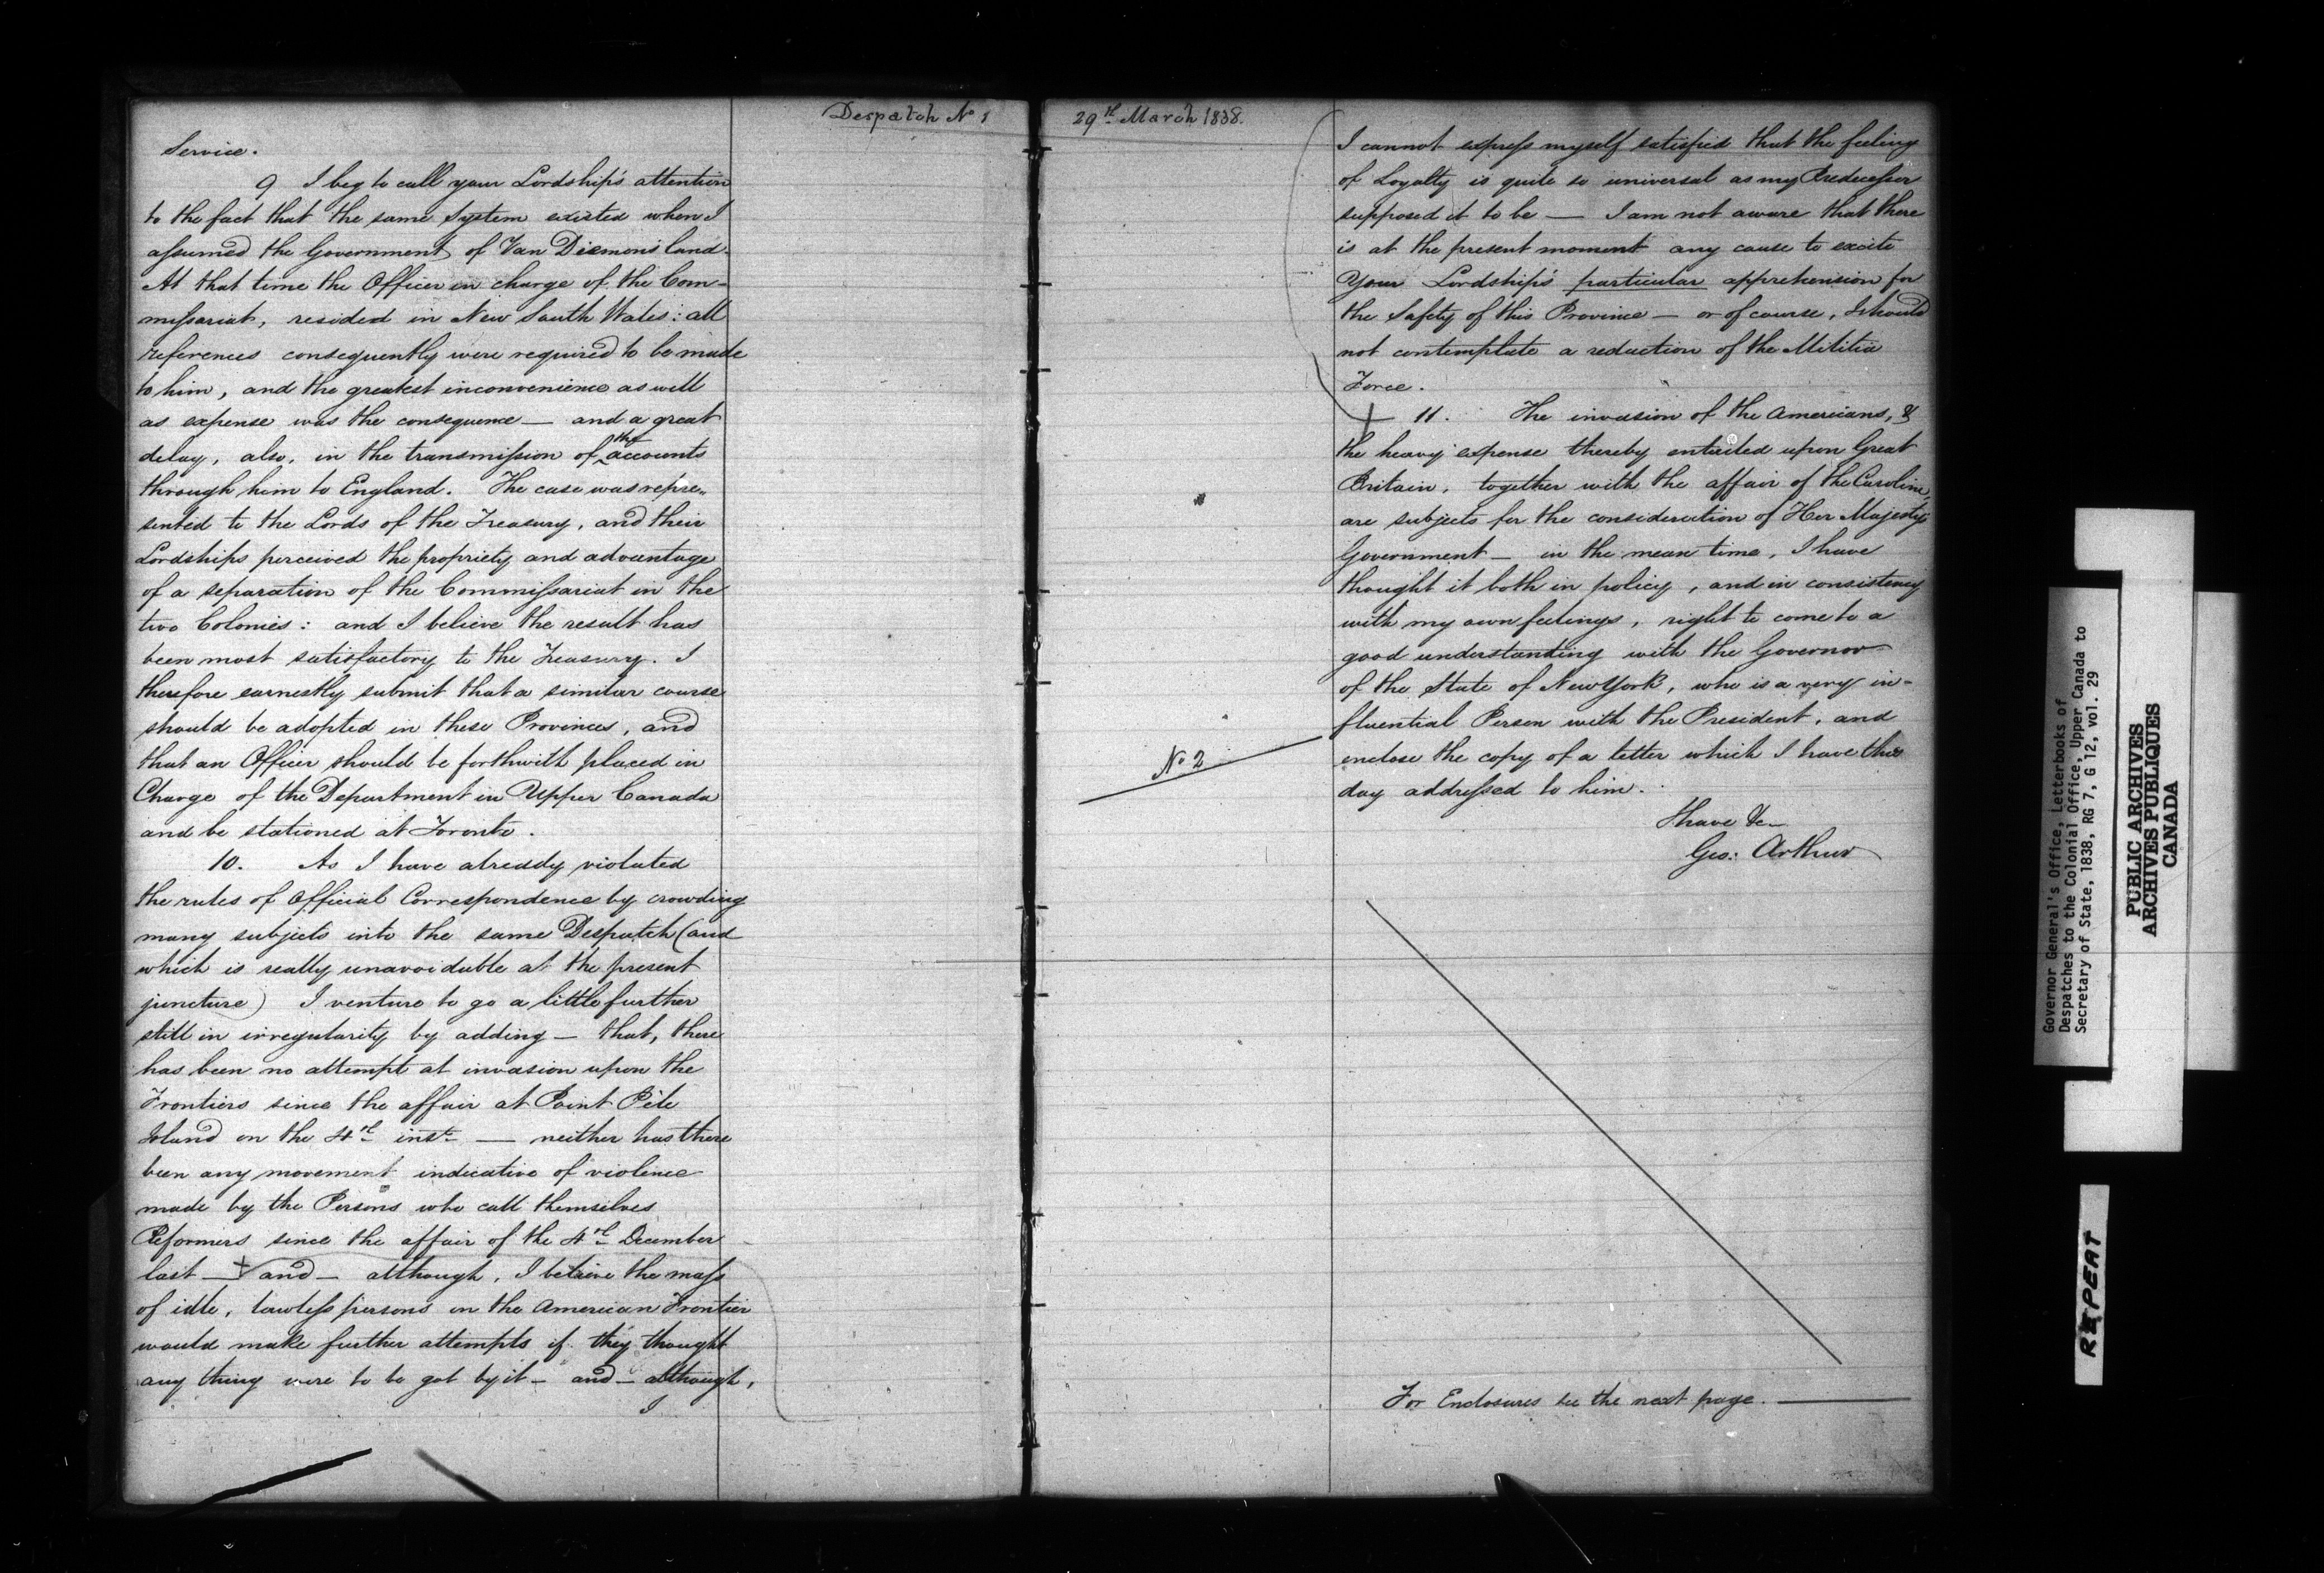 Despatch No 1
Service.
9 I beg to call your Lordship's attention
to the fact that the same System existed when I
assumed the Government of Van Diemon's land.
At that time the Officer in charge of the Com-
missariat, resided in New South Wales: all
references consequently were required to be made
to him, and the greatest inconvenience as well
as expense was the consequence — and a great
delay, also, in the transmission of the accounts
through him to England. The case was repre-
sented to the Lords of the Treasury, and their
Lordships perceived the propriety and advantage
of a separation of the Commissariat in the
two Colonies: and I believe the result has
been most satisfactory to the Treasury. I
therefore earnestly submit that a similar course
should be adopted in these Provinces, and
that an Officer should be forthwith placed in
Charge of the Department in Upper Canada
and be stationed at Toronto.
10. As I have already violated
the rules of Official Correspondence by crowding
many subjects into the same Despatch (and
which is really unavoidable at the present
juncture) I venture to go a little further
still in irregularity by adding — that, there
has been no attempt at invasion upon the
Frontiers since the affair at Point Pele
Island on the 4th inst. — neither has there
been any movement indicative of violence
made by the Persons who call themselves
Reformers since the affair of the 4th December
last — + and — although, I believe the mass
of idle, lawless persons on the American Frontier
would make further attempts if they thought
any thing were to be got by it — and — although,
I
29th March 1838.
I cannot express myself satisfied that the feeling
of Loyalty is quite so universal as my Predecessor
supposed it to be — I am not aware that there
is at the present moment any cause to excite
Your Lordship's particular apprehension for
the Safety of this Province — or of course, I should
not contemplate a reduction of the Militia
Force.
+ 11. The invasion of the Americans, &
the heavy expense thereby entailed upon Great
Britain, together with the affair of the Caroline,
are subjects for the consideration of Her Majesty's
Government — in the mean time, I have
thought it both in policy, and in consistency
with my own feelings, right to come to a
good understanding with the Governor
of the State of New York, who is a very in-
fluential Person with the President, and
No 2
enclose the copy of a letter which I have this
day addressed to him.
I have &c
Geo: Arthur
For Enclosures see the next page.
Governor General's Office, Letterbooks of
Despatches to the Colonial Office, Upper Canada to
Secretary of State, 1838, RG 7, G 12, vol. 29
PUBLIC ARCHIVES
ARCHIVES PUBLIQUES
CANADA
REPEAT